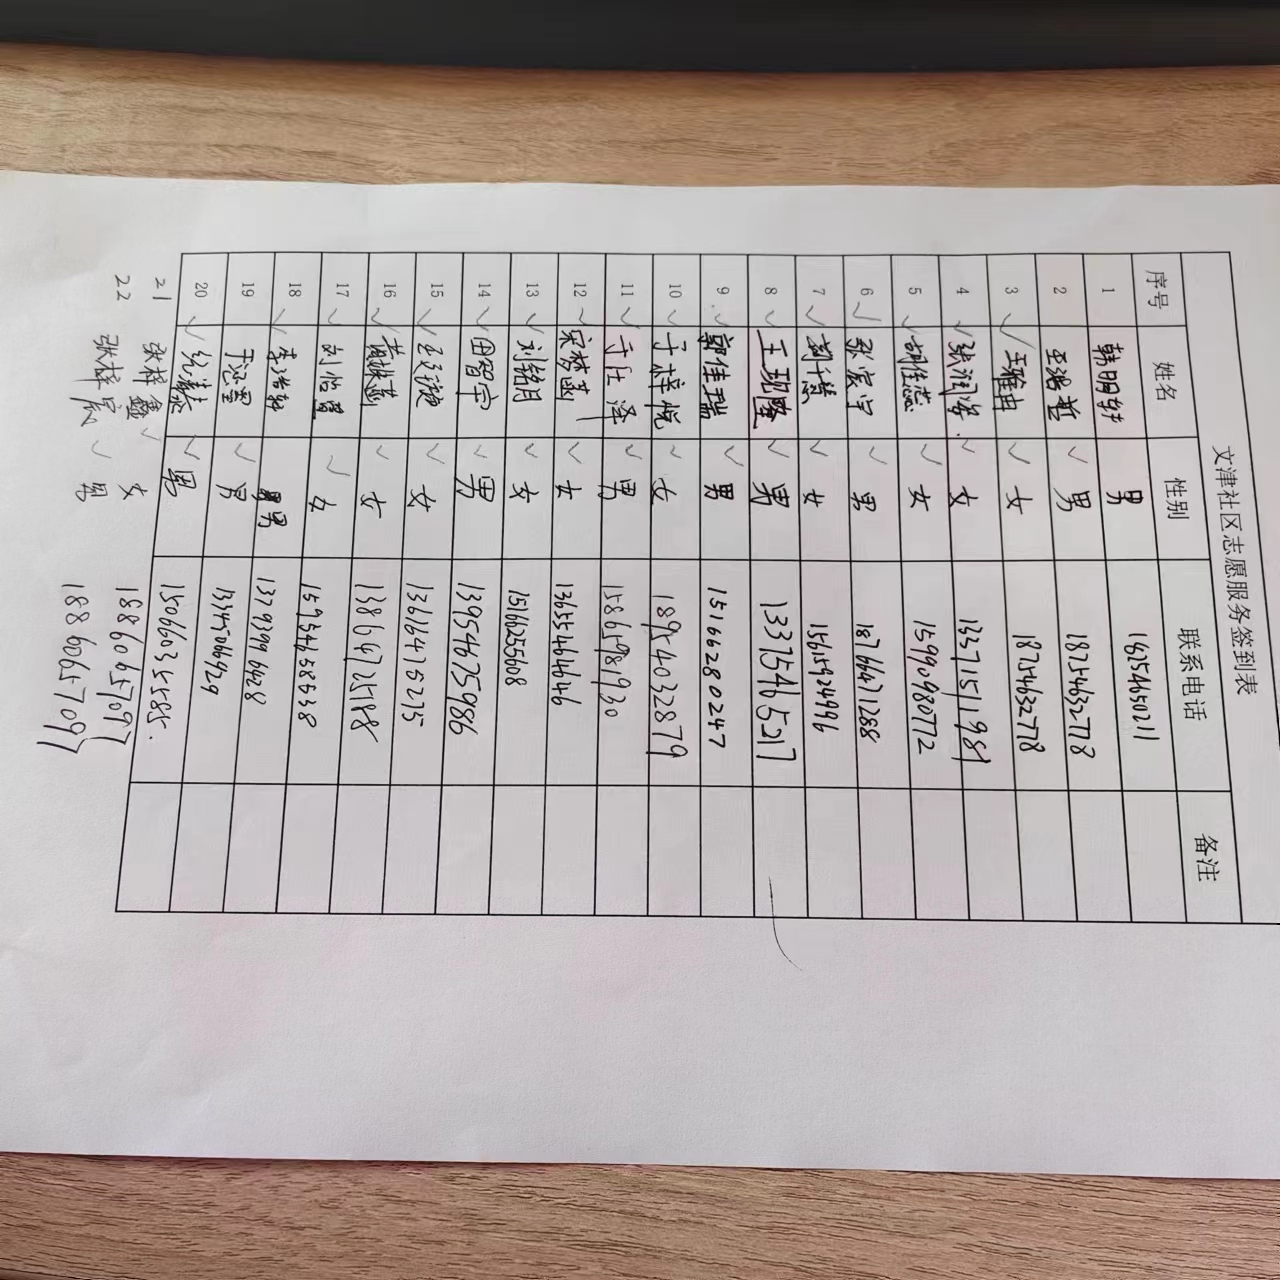 文津社区志愿服务签到表
序号 姓名 性别 联系电话 备注
1 韩明轩 男 16254650211
2 王浩哲 男 18754632778
3 王雅冉 女 18754632778
4 张润 女 13371511984
5 胡佳蕊 女 15990980772
6 张宸宇 男 18766471288
7 女 15615934996
8 王琨 男 13375465217
9 郭佳瑞 男 15166280247
10 于梓悦 女 18954032879
11 于仕泽 男 15865981930
12 宋梦菡 女 13655464646
13 刘铭月 女 15166255668
14 田智宇 男 13954675986
15 女 13616476275
16 女 13864725188
17 刘怡 女 15954658638
18 李浩 男 13793996428
19 于 男 13345066929
20 男 15066034585
21 张梓鑫 女 18860657097
22 张梓宸 男 18860657097